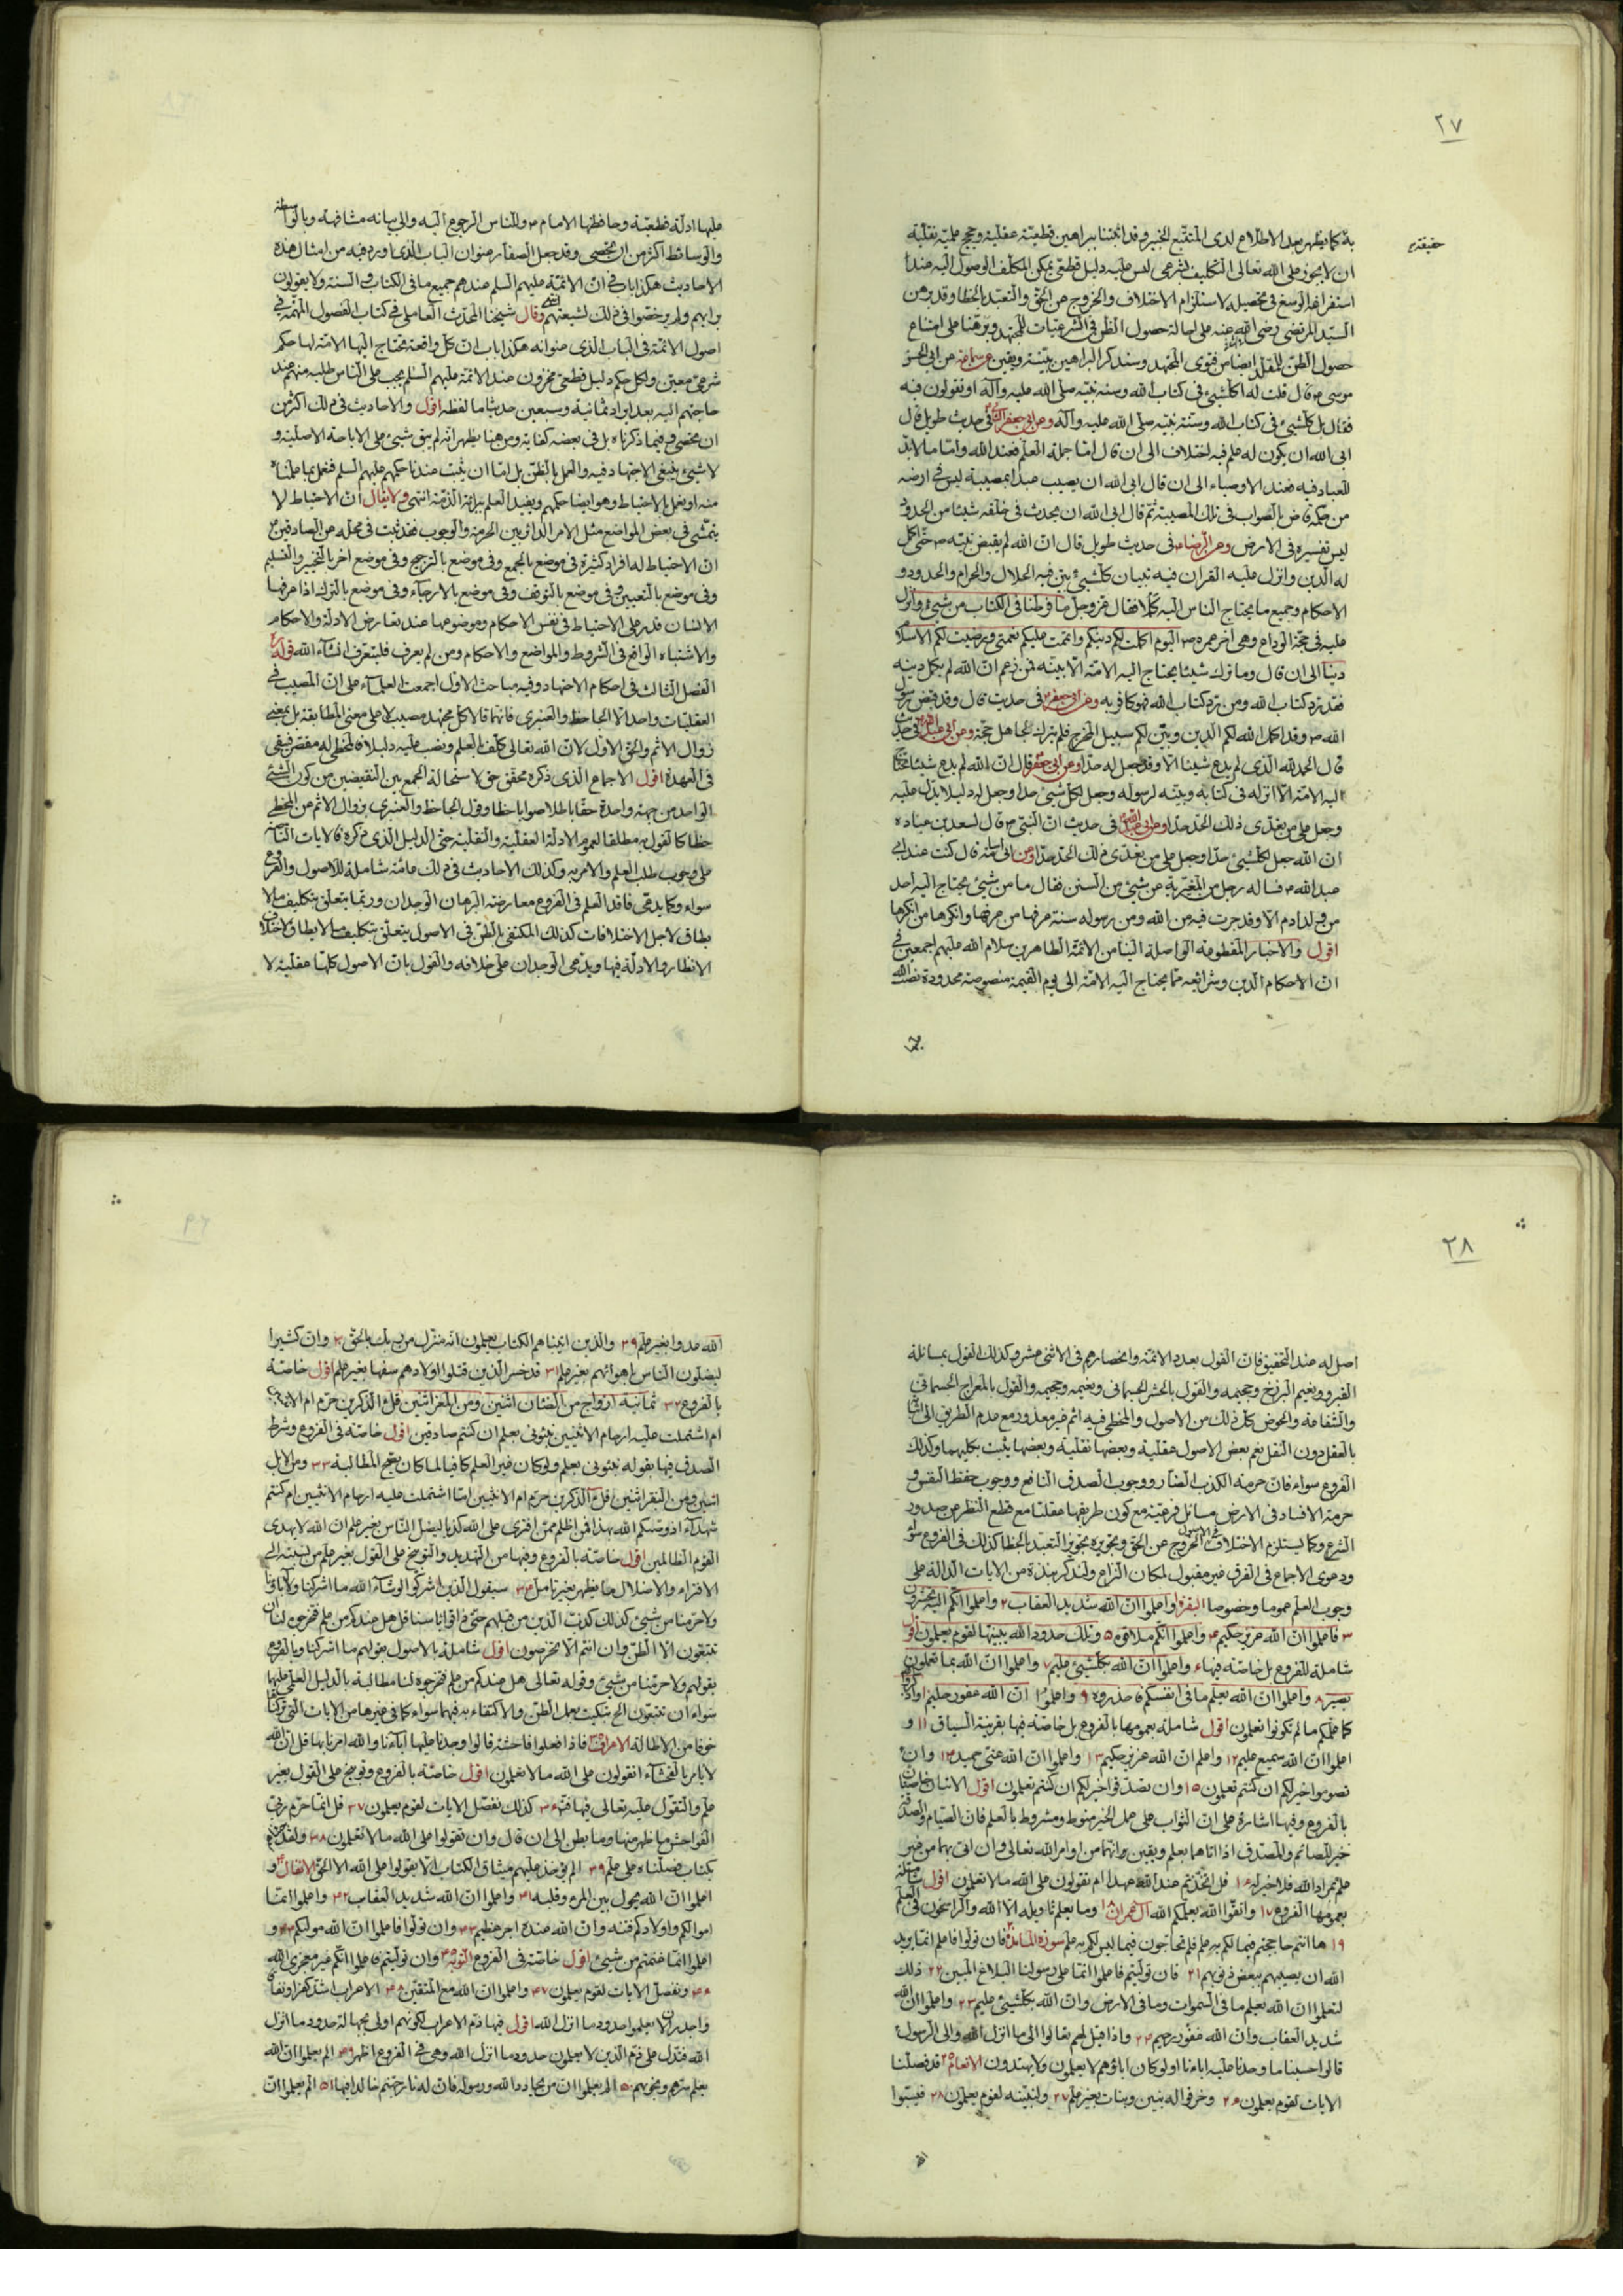 ٢٧
حقيقة
ية كما يظهر بعد الاطلاع لدى المتتبع الخبير وقد اثبتنا ببراهين قطعية عقلية وحجج علمية نقلية
ان لا يجوز على الله تعالى التكليف بشرعى ليس عليه دليل قطعى يمكن المكلف الوصول اليه عند
استفراغ الوسع فى تحصيله لاستلزام الاختلاف والخروج عن الحق والتعبد بالخطا وقد برهن
السيد المرتضى رضى الله عنه على احالة حصول الظن فى الشرعيات للمجتهد وبرهنا على امتناع
حصول الظن للمقلد ايضا من فتوى المجتهد وسنذكر البراهين ببينة ويقين عن سماعة عن ابى الحسن
موسى ع قال قلت له اكلشيئ فى كتاب الله وسنة نبيه صلى الله عليه وآله او تقولون فيه
فقال بل كلشيئ فى كتاب الله وسنة نبيه صلى الله عليه وآله وعن ابى جعفر فى حديث طويل قال
ابى الله ان يكون له علم فيه اختلاف الى ان قال اما جملة العلم فعند الله واما ما لابد
للعباد فيه فعند الاوصياء الى ان قال ابى الله ان يصيب عبدا بمصيبة ليس فى ارضه
من حكمه قاض بالصواب فى تلك المصيبة ثم قال ابى الله ان يحدث فى خلقه شيئا من الحدود
ليس تفسيره فى الارض وعن الرضا ع فى حديث طويل قال ان الله لم يقبض نبيه ص حتى اكمل
له الدين وانزل عليه القران فيه تبيان كلشيئ بين فيه الحلال والحرام والحدود و
الاحكام وجميع ما يحتاج الناس اليه كملا فقال عز وجل ما فرطنا فى الكتاب من شيئ وانزل
عليه فى حجة الوداع وهى اخر عمره ص اليوم اكملت لكم دينكم واتممت عليكم نعمتى ورضيت لكم الاسلام
دينا الى ان قال وما ترك شيئا يحتاج اليه الامة الا بينه فمن زعم ان الله لم يكمل دينه
فقد رد كتاب الله ومن رد كتاب الله فهو كافر به وعن ابى جعفر ع فى حديث قال وقد قبض رسول
الله ص وقد اكمل الله لكم الدين وبين لكم سبيل المخرج فلم يترك لجاهل حجة وعن ابى عبدالله فى حديث
قال الحمدلله الذى لم يدع شيئا الا وقد جعل له حدا وعن ابى جعفر قال ان الله لم يدع شيئا تحتاج
اليه الامة الا انزله فى كتابه وبينه لرسوله وجعل لكل شيئ حدا وجعل له دليلا يدل عليه
وجعل على من تعدى ذلك الحد حدا وعن ابى عبدالله فى حديث ان النبى ص قال لسعد بن عبادة
ان الله جعل لكلشيئ حدا وجعل على من تعدى ذلك الحد حدا وعن ابى اسامة قال كنت عند ابى
عبد الله ع فساله رجل من المغيرية عن شيئ من السنن فقال ما من شيئ يحتاج اليه احد
من ولد ادم الا وقد جرت فيه من الله ومن رسوله سنة عرفها من عرفها وانكرها من انكرها
اقول والاخبار المقطوعة الواصلة الينا من الائمة الطاهرين سلام الله عليهم اجمعين فى
ان الاحكام الدين وشرائعه مما يحتاج اليه الامة الى يوم القيمة منصوصة محدودة نصب الله
عليها ادلة قطعية وحافظها الامام ع وللناس الرجوع اليه والى بيانه مشافهة وبالواسطة
والوسائط اكثر من ان تحصى وقد جعل الصفار عنوان الباب الذى اورد فيه من امثال هذه
الاحاديث هكذا باب فى ان الائمة عليهم السلم عندهم جميع ما فى الكتاب والسنة ولا يقولون
برايهم ولم يرخصوا فى ذلك لشيعتهم انتهى وقال شيخنا المحدث العاملى فى كتاب الفصول المهمة فى
اصول الائمة فى الباب الذى عنوانه هكذا باب ان كل واقعة تحتاج اليها الامة لها حكم
شرعى معين ولكل حكم دليل قطعى مخزون عند الائمة عليهم السلم يجب على الناس طلبه منهم عند
حاجتهم اليه بعد ايراد ثمانية وسبعين حديثا ما لفظه اقول والاحاديث فى ذلك اكثر من
ان تحصى وفيما ذكرناه بل فى بعضه كفاية ومن هنا يظهر انه لم يبق شيئ على الاباحة الاصلية و
لا شيئ ينبغى الاجتهاد فيه والعمل بالظن بل اما ان يثبت عندنا حكمهم عليهم السلم فنعمل بما علمناه
منه او نعمل بالاحتياط وهو ايضا حكمهم ويفيد العلم ببرائة الذمة انتهى ولا يقال ان الاحتياط لا
يتمشى فى بعض المواضع مثل الامر الدائر بين الحرمة والوجوب فقد ثبت فى محله عن الصادقين ع
ان الاحتياط له افراد كثيرة فى موضع بالجمع وفى موضع بالترجيح وفى موضع اخر بالتخيير والتسليم
وفى موضع بالتعيين وفى موضع بالتوقف وفى موضع بالارجاء وفى موضع بالترك اذا عرفها
الانسان قدر على الاحتياط فى نفس الاحكام وموضوعها عند تعارض الادلة والاحكام
والاشتباه الواقع فى الشروط والمواضع والاحكام ومن لم يعرف فليتعرف انشاء الله قوله
الفصل الثالث فى احكام الاجتهاد وفيه مباحث الاول اجمعت العلماء على ان المصيب فى
العقليات واحد الا الجاحظ والعنبرى فانهما قالا كل مجتهد مصيب لا على معنى المطابقة بل بمعنى
زوال الاثم والحق الاول لان الله تعالى كلف العلم ونصب عليه دليلا فالمخطى له مقصر فيبقى
فى العهدة اقول الاجماع الذى ذكره محقق حق لاستحالة الجمع بين النقيضين من كون الشيئ
الواحد من جهة واحدة حقا باطلا صوابا خطا وقول الجاحظ والعنبرى بزوال الاثم عن المخطى
خطا كالقول به مطلقا لعموم الادلة العقلية والنقلية حتى الدليل الذى ذكره فالايات الناصة
على وجوب طلب العلم والامر به وكذلك الاحاديث فى ذلك عامة شاملة للاصول والفروع
سواء وكما يدعى فاقد العلم فى الفروع معارضة البرهان الوجدان وربما يتعلق بتكليف ما لا
يطاق لاجل الاختلافات كذلك المكتفى بالظن فى الاصول يتعلق بتكليف ما لا يطاق لاختلاف
الانظار والادلة فيها ويدعى الوجدان على خلافه والقول بان الاصول كلها عقلية لا
٢٨
اصل له عند التحقيق فان القول بعدد الائمة وانحصارهم فى الاثنى عشر وكذلك القول بمسائلة
القبر ونعيم البرزخ وجحيمه والقول بالحشر الجسمانى ونعيمه وجحيمه والقول بالمعراج الجسمانى
والشفاعة والحوض كل ذلك من الاصول والمخطى فيه اثم غير معذور مع عدم الطريق الى اثباتها
بالعقل دون النقل نعم بعض الاصول عقلية وبعضها نقلية وبعضها يثبت بكليهما وكذلك
الفروع سواء فان حرمة الكذب الضار ووجوب الصدق النافع ووجوب حفظ النفس و
حرمة الافساد فى الارض مسائل فرعية مع كون طريقها عقليا مع قطع النظر عن صدور
الشرع وكما يستلزم الاختلاف فى الاصول الخروج عن الحق وتجويزه تجويز التعبد بالخطا كذلك فى الفروع سواء
ودعوى الاجماع فى الفرق غير مقبول لمكان النزاع ولنذكر نبذة من الايات الدالة على
وجوب العلم عموما وخصوصا البقرة ١ واعلموا ان الله شديد العقاب ٢ واعلموا انكم اليه تحشرون
٣ فاعلموا ان الله عزيز حكيم ٤ واعلموا انكم ملاقوه ٥ وتلك حدود الله يبينها لقوم يعلمون اقول
شاملة للفروع بل خاصة فيها ٦ واعلموا ان الله بكلشيئ عليم ٧ واعلموا ان الله بما تعملون
بصير ٨ واعلموا ان الله يعلم ما فى انفسكم فاحذروه ٩ واعلموا ان الله غفور حليم ١٠ واذكروا
كما علمكم ما لم تكونوا تعلمون اقول شاملة بعمومها بالفروع بل خاصة فيها بقرينة السياق ١١ و
اعلموا ان الله سميع عليم ١٢ واعلم ان الله عزيز حكيم ١٣ واعلموا ان الله غنى حميد ١٤ وان
تصوموا خير لكم ان كنتم تعلمون ١٥ وان تصدقوا خير لكم ان كنتم تعلمون اقول الايتان خاصتان
بالفروع وفيها اشارة على ان الثواب على عمل الخير منوط ومشروط بالعلم فان الصيام والصدقة
خير للصائم والمتصدق اذا اتاهما بعلم ويقين وانهما من اوامر الله تعالى وان اتى بهما من غير
علم بمراد الله فلا خير له ١٦ قل اتخذتم عند الله عهدا ام تقولون على الله ما لا تعلمون اقول شاملة
بعمومها الفروع ١٧ واتقوا الله يعلمكم الله آل عمران ١٨ وما يعلم تاويله الا الله والراسخون فى العلم
١٩ ها انتم حاججتم فيما لكم به علم فلم تحاجون فيما ليس لكم به علم سورة المائدة ٢٠ فان تولوا فاعلم انما يريد
الله ان يصيبهم ببعض ذنوبهم ٢١ فان توليتم فاعلموا انما على رسولنا البلاغ المبين ٢٢ ذلك
لتعلموا ان الله يعلم ما فى السموات وما فى الارض وان الله بكلشيئ عليم ٢٣ واعلموا ان الله
شديد العقاب وان الله غفور رحيم ٢٤ واذا قيل لهم تعالوا الى ما انزل الله والى الرسول
قالوا حسبنا ما وجدنا عليه اباءنا اولو كان اباؤهم لا يعلمون ولا يهتدون الانعام ٢٥ قد فصلنا
الايات لقوم يعلمون ٢٦ وخرقوا له بنين وبنات بغير علم ٢٧ ولنبينه لقوم يعلمون ٢٨ فيسبوا
الله عدوا بغير علم ٢٩ والذين اتيناهم الكتاب يعلمون انه منزل من ربك بالحق ٣٠ وان كثيرا
ليضلون الناس باهوائهم بغير علم ٣١ قد خسر الذين قتلوا اولادهم سفها بغير علم اقول خاصة
بالفروع ٣٢ ثمانية ازواج من الضئان اثنين ومن المعز اثنين قل ءالذكرين حرم ام الانثيين
ام اشتملت عليه ارحام الانثيين نبئونى بعلم ان كنتم صادقين اقول خاصة فى الفروع وشرط
الصدق فيها بقوله نبئونى بعلم ولو كان غير العلم كافيا لما كان يقع المطالبة ٣٣ ومن الابل
اثنين ومن البقر اثنين قل ءالذكرين حرم ام الانثيين اما اشتملت عليه ارحام الانثيين ام كنتم
شهداء اذ وصيكم الله بهذا فمن اظلم ممن افترى على الله كذبا ليضل الناس بغير علم ان الله لا يهدى
القوم الظالمين اقول خاصة بالفروع وفيها من التهديد والتوبيخ على القول بغير علم من نسبته الى
الافتراء والاضلال ما يظهر بغير تامل ٣٤ سيقول الذين اشركوا لو شاء الله ما اشركنا ولا اباؤنا
ولا حرمنا من شيئ كذلك كذب الذين من قبلهم حتى ذاقوا باسنا قل هل عندكم من علم فتخرجوه لنا ان
تتبعون الا الظن وان انتم الا تخرصون اقول شاملة بالاصول بقولهم ما اشركنا وبالفروع
بقولهم ولا حرمنا من شيئ وقوله تعالى هل عندكم من علم فتخرجوه لنا مطالبة بالدليل العلمى عليها
سواء ان تتبعون الخ تبكيت بعمل الظن والاكتفاء به فيهما سواء كما فى غيرها من الايات التى تركناها
خوفا من الاطالة الاعراف ٣٥ فاذا فعلوا فاحشة قالوا وجدنا عليها آباءنا والله امرنا بها قل ان الله
لا يامر بالفحشاء اتقولون على الله ما لا تعلمون اقول خاصة بالفروع وتوبيخ على القول بغير
علم والتقول عليه تعالى فيها ٣٦ كذلك نفصل الايات لقوم يعلمون ٣٧ قل انما حرم ربى
الفواحش ما ظهر منها وما بطن الى ان قال وان تقولوا على الله ما لا تعلمون ٣٨ ولقد جئناهم
بكتاب فصلناه على علم ٣٩ الم يؤخذ عليهم ميثاق الكتاب الا يقولوا على الله الا الحق الانفال ٤٠ و
اعلموا ان الله يحول بين المرء وقلبه ٤١ واعلموا ان الله شديد العقاب ٤٢ واعلموا انما
اموالكم واولادكم فتنة وان الله عنده اجر عظيم ٤٣ وان تولوا فاعلموا ان الله موليكم ٤٤ و
اعلموا انما غنمتم من شيئ اقول خاصة فى الفروع التوبة ٤٥ وان توليتم فاعلموا انكم غير معجزى الله
٤٦ ونفصل الايات لقوم يعلمون ٤٧ واعلموا ان الله مع المتقين ٤٨ الاعراب اشد كفرا ونفاقا
واجدر ان لا يعلموا حدود ما انزل الله اقول فيها ذم الاعراب لكونهم اولى بجهالة حدود ما انزل
الله فتدل على ذم الذين لا يعلمون حدود ما انزل الله وهى فى الفروع اظهر ٤٩ الم يعلموا ان الله
يعلم سرهم ونجويهم ٥٠ الم يعلموا ان من يحادد الله ورسوله فان له نار جهنم خالدا فيها ٥١ الم يعلموا ان